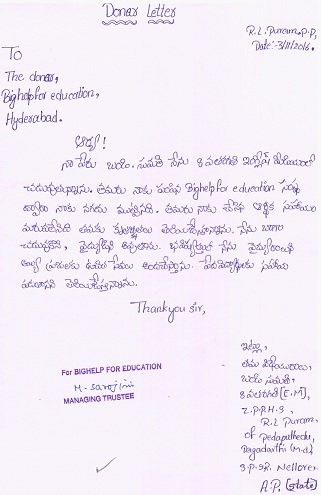 Donar Letter
R.L. Puram. P.P,
Date:-3/11/2016.
To
The donar,
Bighelp for education,
Hyderabad.
ఆర్యా!
నా పేరు బండి. సుమతి నేను 8 వతరగతి ఇంగ్లీష్ మీడియంలో
చదువుచున్నాను. తమరు నాకు పంపిన Bighelp for education సంస్థ
ద్వారా నాకు నగదు ముట్టినది. తమరు నాకు చేసిన ఆర్థిక సహాయం
మరువలేనిది తమకు కృతజ్ఞతలు తెలియజేస్తున్నాను. నేను బాగా
చదువుకొని, వైద్యురాలి అవుతాను. భవిష్యత్తులో నేను వైద్యురాలినై
ప్రజలకు ఉచిత సేవలు అందజేస్తాను. పేదవిద్యార్థులకు సహాయ
పడతానని తెలియజేస్తున్నాను.
Thankyou sir,
For BIGHELP FOR EDUCATION
M. Sarojini
MANAGING TRUSTEE
ఇట్లు,
తమ విధేయురాలు,
బండి సుమతి,
8 వతరగతి [E.M],
Z.P.P.H.S,
R.L Puram,
of pedaputhedu,
Dagadarthi (M.d),
S.P.S.R. Nellore,
A.P. [state]